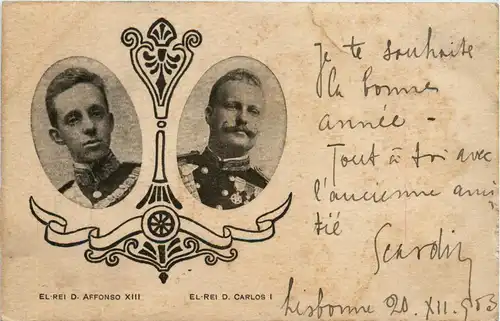 Je te souhaite
la bonne
année -
Tout à toi avec
l'ancienne ami
tié
Lisbonne 20. XII. 903
EL-REI D. AFFONSO XIII
EL-REI D. CARLOS I